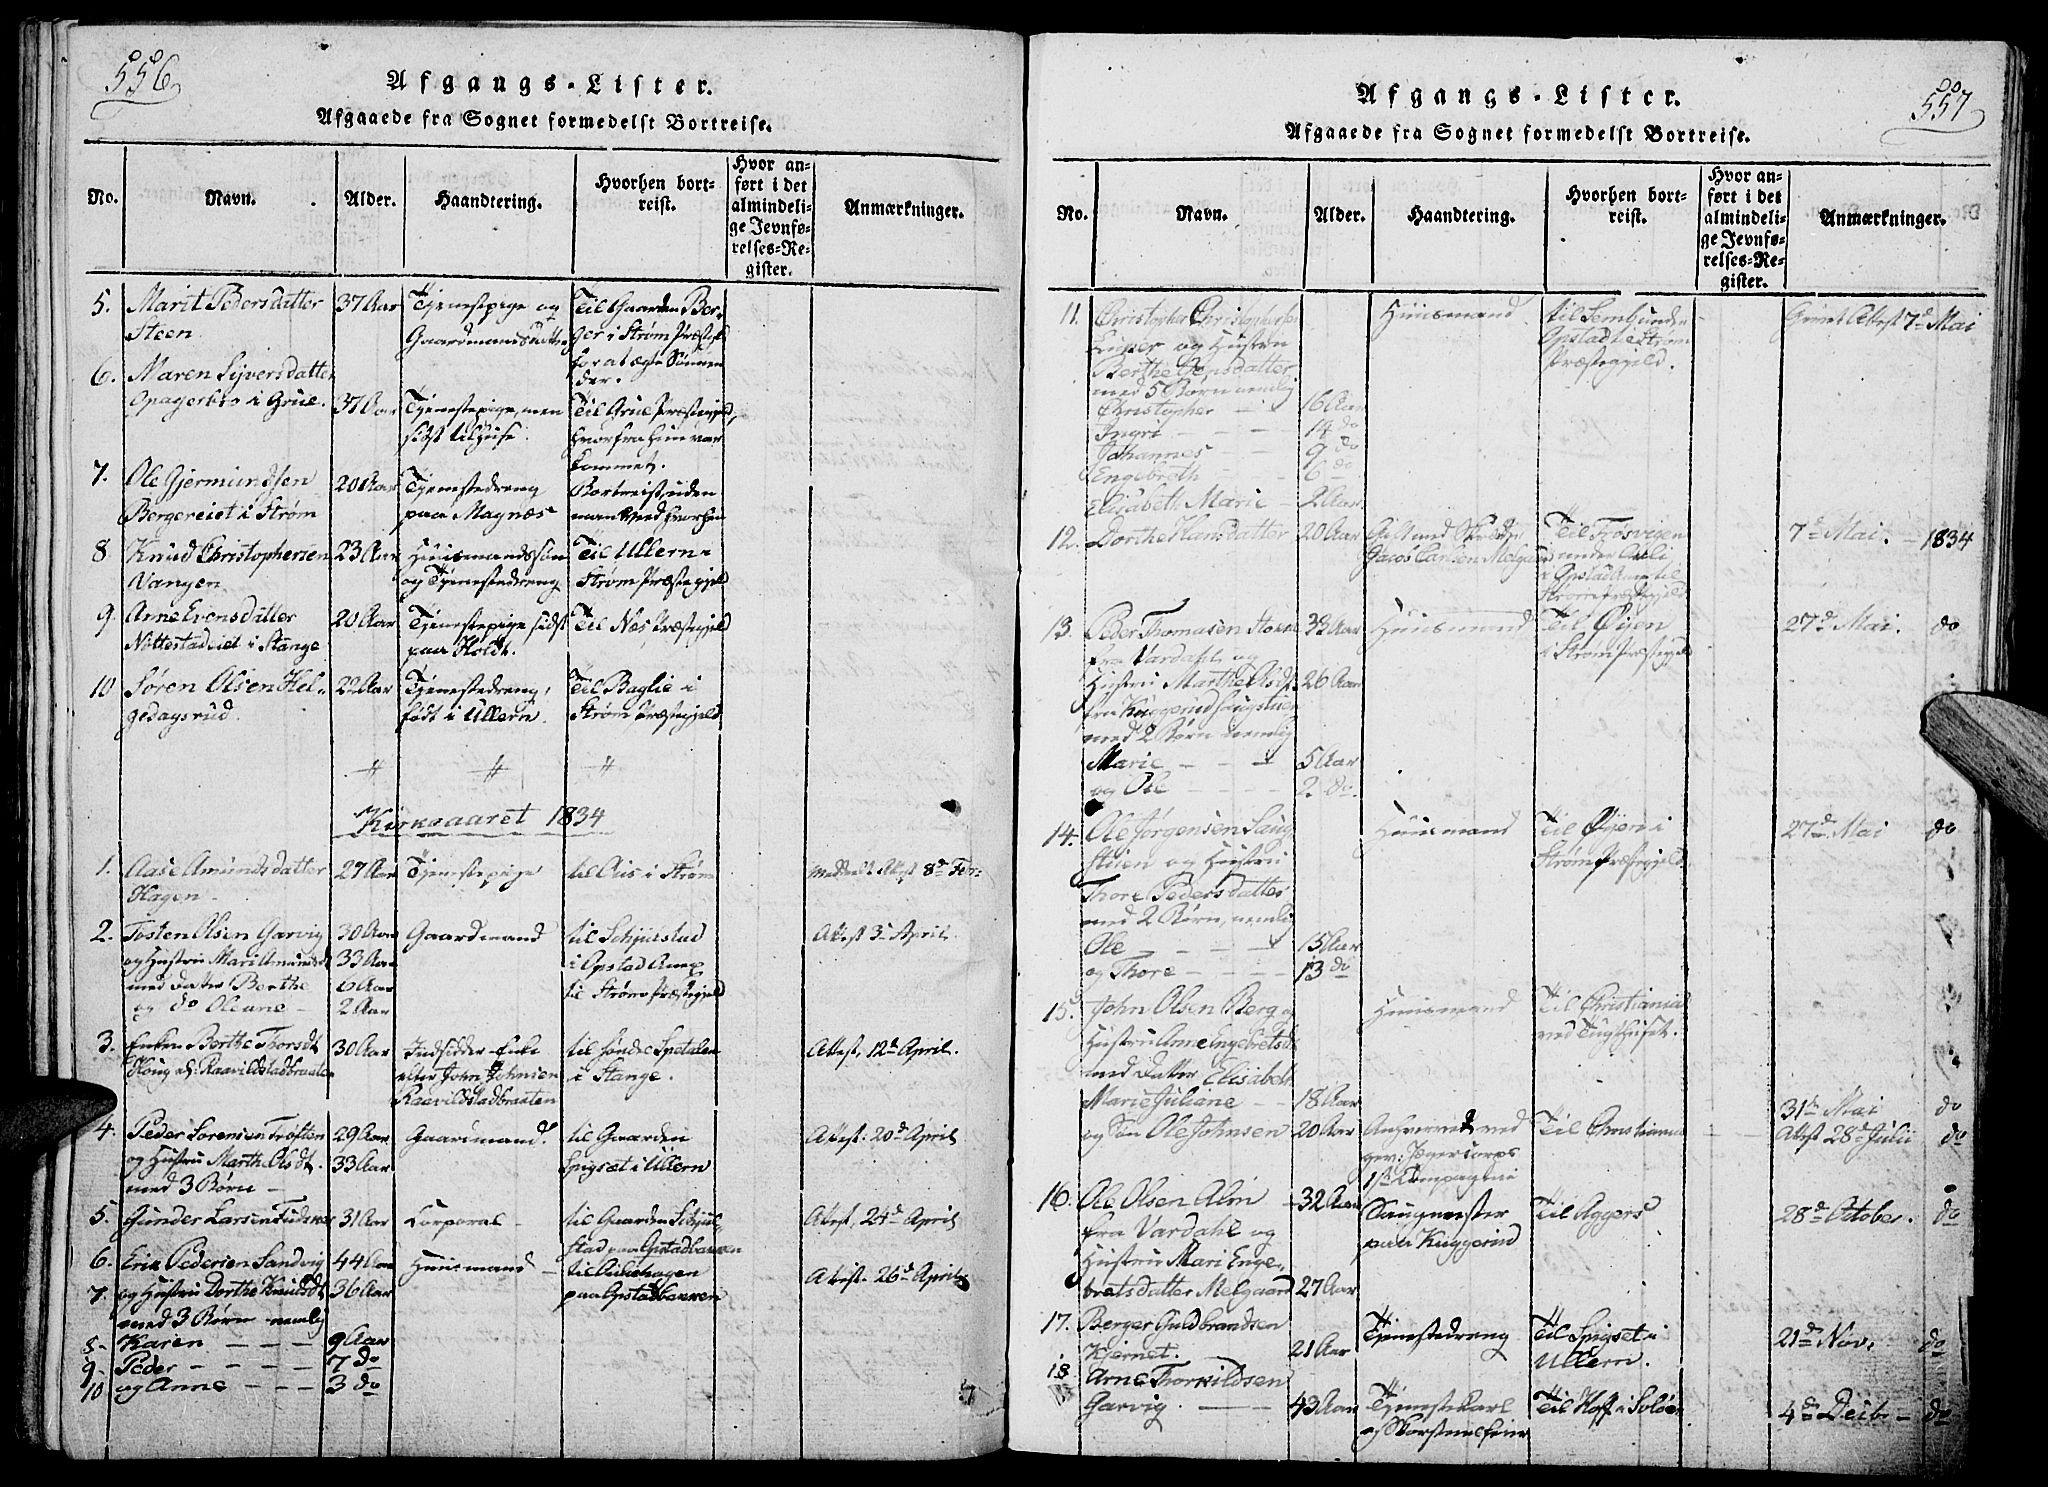 556
Afgangs-Lister.
Afgaaede fra Sognet formedelst Bortreise.
No. Navn. Alder. Haandtering. Hvorhen bortreist. Hvor anført i det almindelige Jevnførelses-Register. Anmærkninger.
5. Marit Pedersdatter 37 Aar Tjenestepige og Til Gaarden Ber-
Steen. Gaardmandsdatter ger i Strøm Præstegjeld
for at ægte Sønnen
der.
6. Maren Syversdatter
i Grue. 37 Aar Tjenestepige, men Til Grue Præstegjeld,
sidst tilhuse. hvorfra hun var
kommet.
7. Ole Gjermundsen 20 Aar Tjenestedreng Bortreist, uden
Bergereiet i Strøm paa Magnæs man veed hvorhen
8 Knud Christophersen 23 Aar Huusmandssøn Til Ullern i
Vangen. og Tjenestedreng Strøm Præstegjeld
9. Anne Evensdatter 20 Aar Tjenestepige sidst Til Næs Præstegjeld
Nøttestadeiet i Stange paa Holdt.
10 Søren Olsen Hel- 22 Aar Tjenestedreng, Til Baglie i
gedagsrud. født i Ullern. Strøm Præstegjeld
Kirkeaaret 1834
1. Aase Amundsdatter 27 Aar Tjenestepige til Aus i Strøm meddeelt Attest 8de Febr.
Hagen.
2. Tosten Olsen Garvig 30 Aar Gaardmand til Schjulstad Attest 3die April.
og Hustru Mari Amundsdt 33 Aar i Opstad Anex
med datter Berthe 6 Aar til Strøm Præstegjeld
og do Oleane 2 Aar
3. Enken Berthe Thorsdt 30 Aar Indsidder-Enke til Søndre Spetalen Attest, 12te April.
Raavildstadbraaten efter John Johnsen i Stange.
Raavildstadbraaten
4. Peder Sørensen Trøften 29 Aar Gaardmand. til Gaarden Attest 20de April
og Hustru Marthe Olsdt. 33 Aar Spigset i Ullern
med 3 Børn
5. Gunder Larsen 31 Aar Corporal til Gaarden Schjul- Attest, 24de April
stad paa Opstadbakken
6. Erik Pedersen Sandvig 44 Aar Huusmand til Aukehagen Attest. 26de April
7 og Hustru Dorthe Knudsdt 36 Aar paa Opstadbakken
med 3 Børn nemlig
8. Karen 9 Aar
9. Peder 7 do
10 og Anne 3 do
557
Afgangs-Lister.
Afgaaede fra Sognet formedelst Bortreise.
No. Navn. Alder. Haandtering. Hvorhen bortreist. Hvor anført i det almindelige Jevnførelses-Register. Anmærkninger.
11. Christopher Christophersen Huusmand til Semb under Attest 7de Mai
og Hustru Opstad i Strøm
Berthe Jensdatter Præstegjeld.
med 5 Børn nemlig
Christopher 16 Aar
Ingri 14 do
Johannes 9 do
Engebreth 6 do
Elisabeth Marie 2 Aar
12. Dorthe Hansdatter 20 Aar Gift med Til Frøsvigen 7de Mai. 1834
Jacob Carlsen Melgaard under
i Opstad Anex til
Strøm Præstegjeld
13. Peder Thomasen 33 Aar Huusmand Til Øien 27de Mai. do
fra Vardahl og i Strøm Præstegjeld
Hustru Marthe Olsdt. 26 Aar
fra Kuggerud Saugstuen
med 2 Børn nemlig
Marie 5 Aar
og Ole 2 do.
14. Ole Jørgensen Saug- Huusmand Til Øien i 27de Mai do
stuen og Hustru Strøm Præstegjeld.
Thore Pedersdatter
med 2 Børn, nemlig
Ole 15 Aar
og Thore 13 do
15. John Olsen Berg og Huusmand Til Christiania
Hustru Anne Engebretsdt. ved Tugthuset.
med Datter Elisabeth
Marie Juliane 18 Aar 31te Mai do
og Søn Ole Johnsen 20 Aar Anhvervet ved Til Christiania Attest 28de Julii do
gev: Jægercorps
1ste Compagnie
16. Ole Olsen Alm 32 Aar Saugmester Til Aggers 28de October. do
fra Vardahl og paa Kuggerud
Hustru Mari Enge-
bretsdatter Melgaard 27 Aar
17. Berger Guldbrandsen Tjenestedreng Til Spigset i 21de Nov. do
Kjernet. 21 Aar Ullern.
18 Arne Thorkildsen
Garvig. 43 Aar Tjenestekarl Til Hof i Soløer 4de Decbr do
og Skorsteensfeier